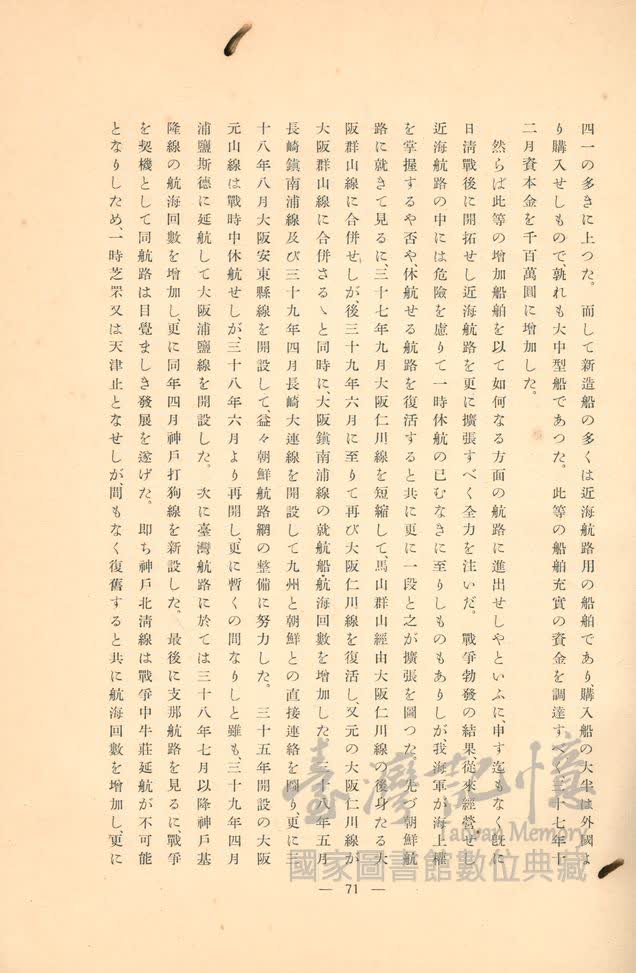 四一の多きに上つた。而して新造船の多くは近海航路用の船舶であり、購入船の大半は外國よ
り購入せしもので、孰れも大中型船であつた。此等の船舶充實の資金を調達すべく三十七年十
二月資本金を千百萬圓に增加した。
然らば此等の增加船舶を以て如何なる方面の航路に進出せしやといふに、申す迄もなく既に
日淸戰後に開拓せし近海航路を更に擴張すべく全力を注いだ。戰爭勃發の結果、從來經營せし
近海航路の中には危險を慮りて一時休航の已むなきに至りしものもありしが、我海軍が海上權
を掌握するや否や、休航せる航路を復活すると共に更に一段と之が擴張を圖つた。先づ朝鮮航
路に就きて見るに、三十七年九月大阪仁川線を短縮して、馬山群山經由大阪仁川線の後身たる大
阪群山線に合併せしが、後三十九年六月に至りて再び大阪仁川線を復活し、又元の大阪仁川線が
大阪群山線に合併さるゝと同時に、大阪鎭南浦線の就航船、航海回數を增加した。三十八年五月
長崎鎭南浦線及び三十九年四月長崎大連線を開設して九州と朝鮮との直接連絡を圖り、更に三
十八年八月大阪安東縣線を開設して、益々朝鮮航路網の整備に努力した。三十五年開設の大阪
元山線は戰時中休航せしが、三十八年六月より再開し、更に暫くの間なりしと雖も、三十九年四月
浦鹽斯德に延航して大阪浦鹽線を開設した。次に臺灣航路に於ては三十八年七月以降神戶基
隆線の航海回數を增加し、更に同年四月神戶打狗線を新設した。最後に支那航路を見るに、戰爭
を契機として同航路は目覺ましき發展を遂げた。卽ち神戶北淸線は戰爭中牛莊延航が不可能
となりしため、一時芝罘又は天津止となせしが、間もなく復舊すると共に航海回數を增加し、更に
— 71 —
臺灣記憶
Taiwan Memory
國家圖書館數位典藏